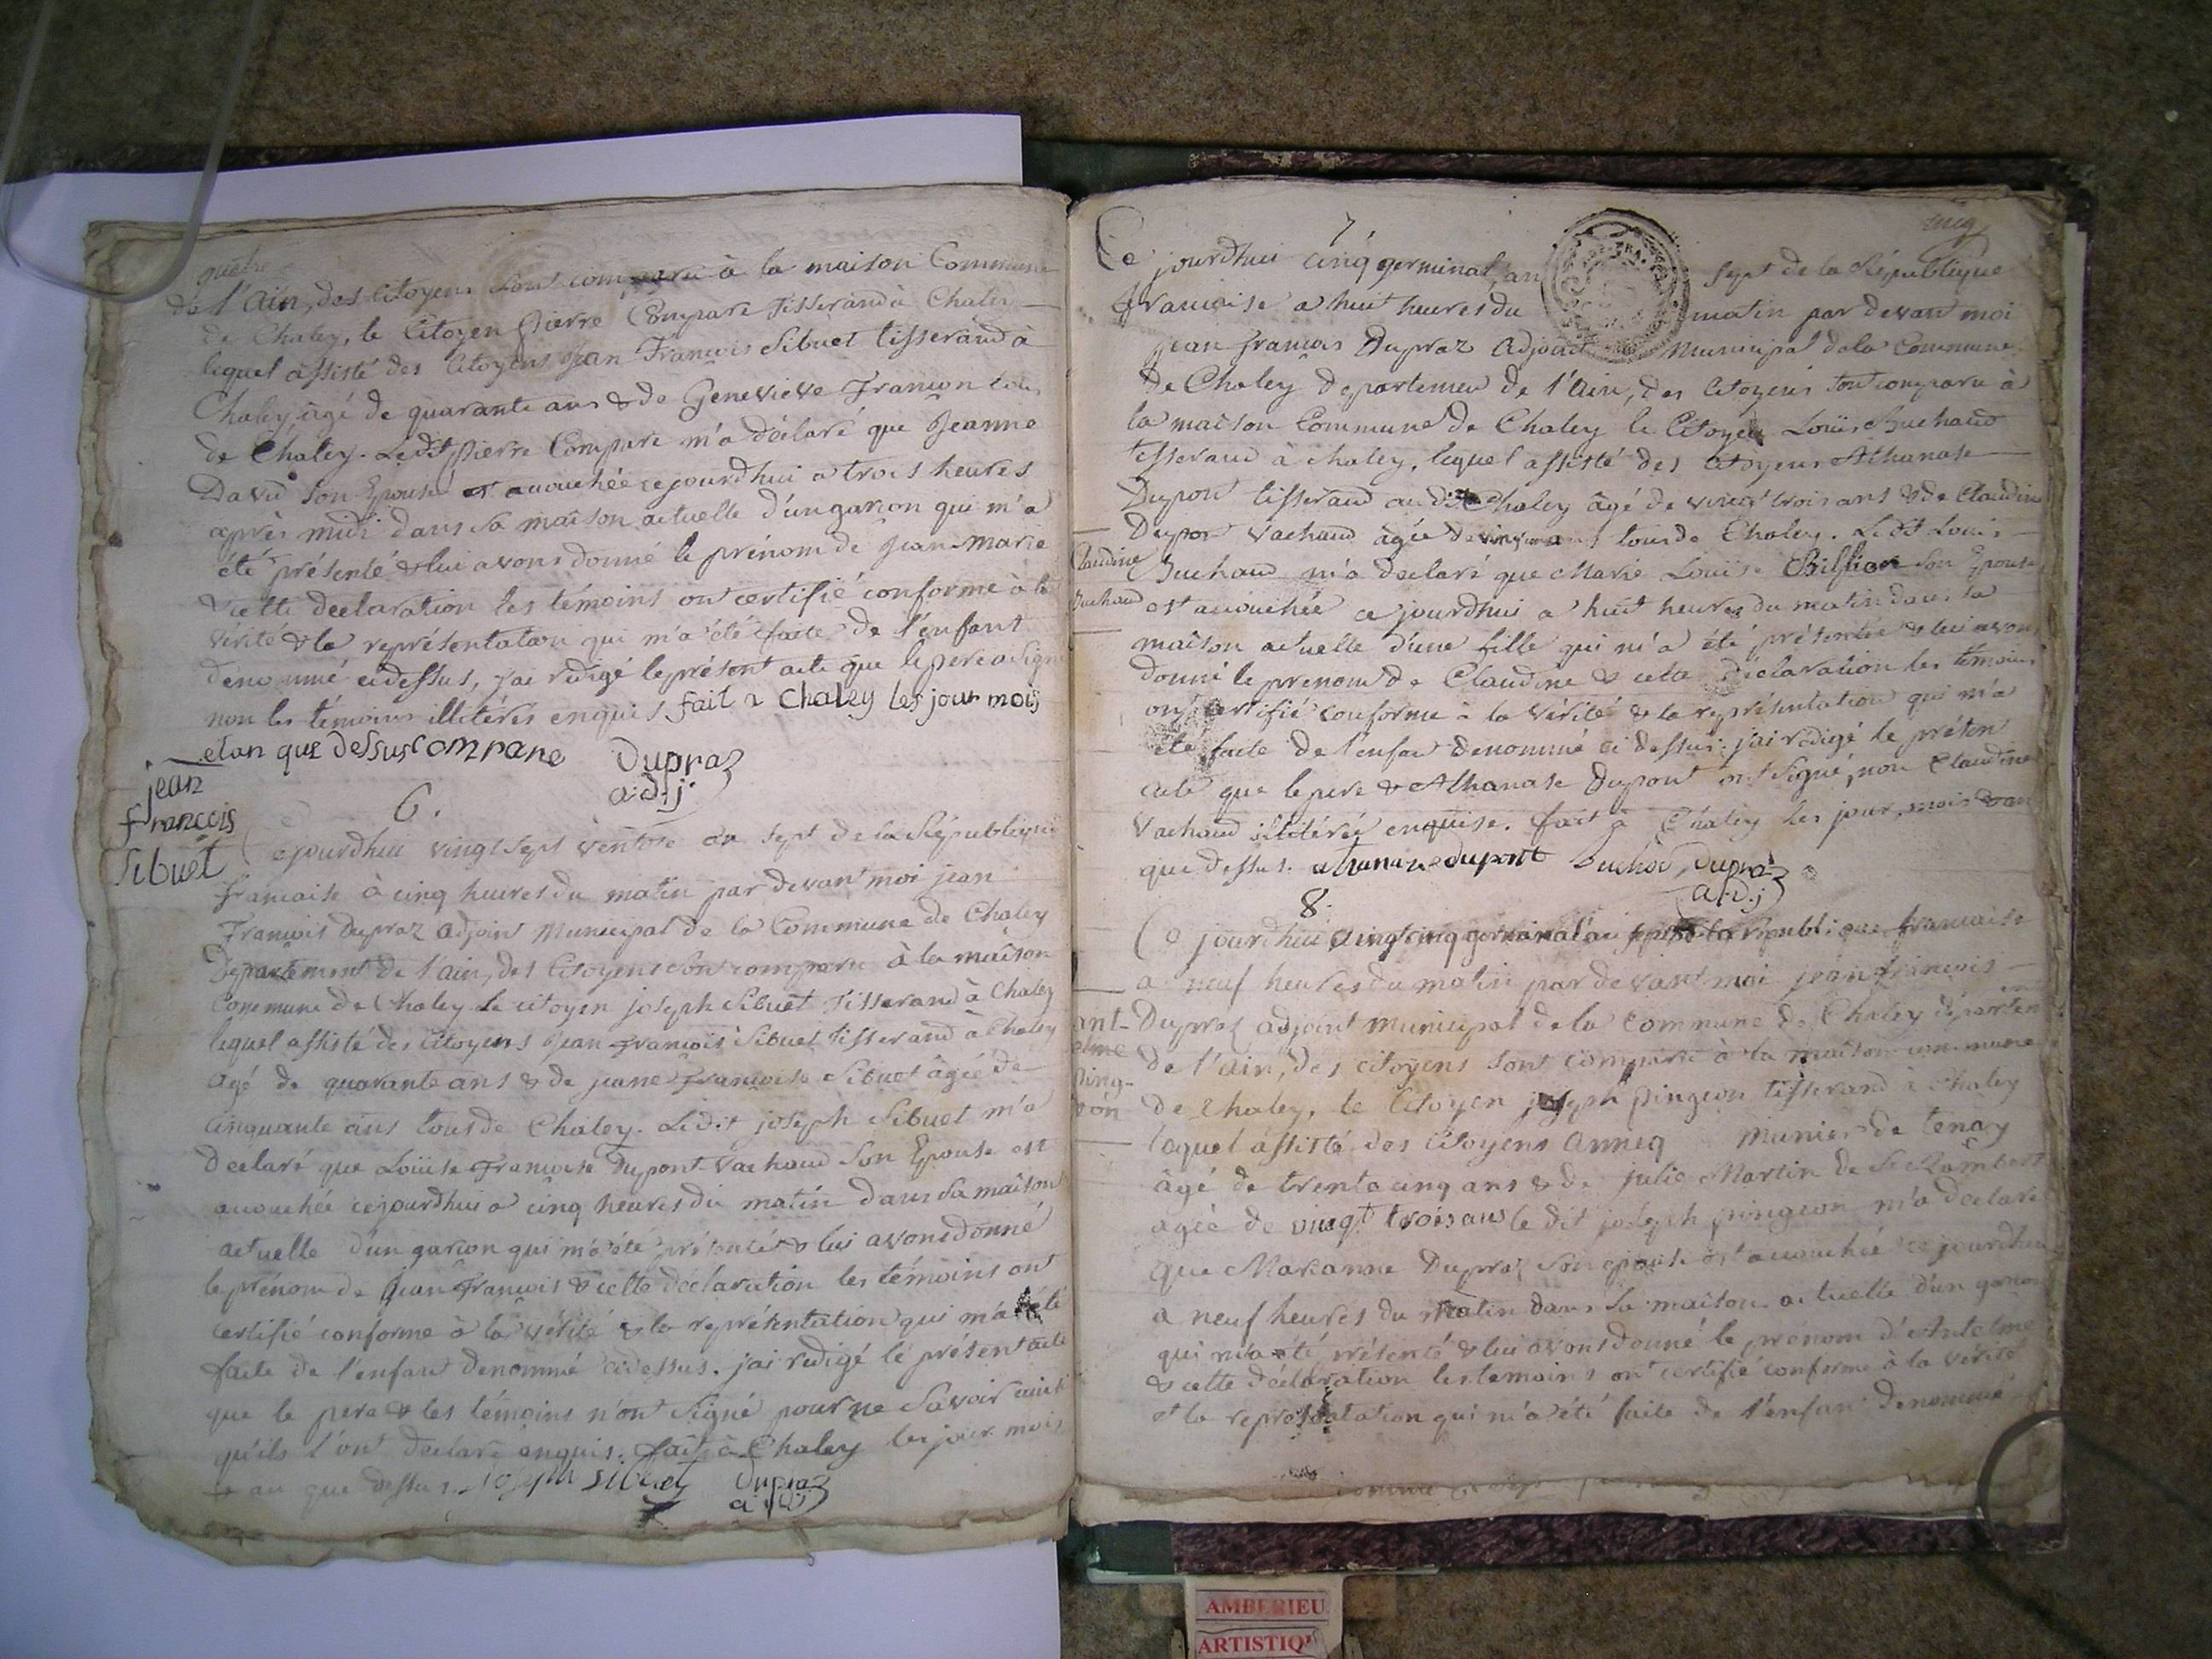 de l'Ain, des Citoyens sont comparu à la maison Commune
de Chaley, le Citoyen Pierre Compare Tisserand à Chaley
lequel assisté des Citoyens Jean François Sibuet tisserand à
Chaley, âgé de quarante ans & de Geneviève Françon tous
de Chaley. Ledit Pierre Compare m'a déclaré que Jeanne
David son Epouse est acouchée cejourdhui a trois heures
après midi dans sa maison actuelle d'un garcon qui m'a
été présenté & lui avons donné le prénom de Jean-Marie
& cette declaration les témoins ont certifié conforme à la
vérité & la représentation qui m'a été faite de l'enfant
denommé cidessus, j'ai redigé le présent acte que le pere a signé
non les témoins illitérés enquis fait a Chaley les jour mois
etan que dessus compare Dupraz
a.d.j.
jean
francois
Sibuet
6.
Cejourdhui vingt sept ventose an sept de la République
francaise à cinq heures du matin par devant moi jean
François Dupraz adjoint Municipal de la Commune de Chaley
Département de l'ain, des Citoyens sont comparu à la maison
Commune de Chaley le citoyen joseph Sibuet Tisserand à Chaley
lequel assisté des Citoyens Jean François Sibuet Tisserand à Chaley
agé de quarante ans & de jeane Françoise Sibuet âgée de
cinquante ans tous de Chaley. Ledit joseph Sibuet m'a
declaré que Loüise Francoise Dupont-Vachaud son Epouse est
acouchée cejourdhui a cinq heures du matin dans sa maison
actuelle d'un garcon qui m'a été présenté & lui avons donné
le prénom de Jean François & cette déclaration les témoins ont
certifié conforme à la vérité & la représentation qui m'a été
faite de l'enfant denommé cidessus. j'ai redigé le présent acte
que le pere & les témoins n'ont signé pour ne savoir ainsi
qu'ils l'ont declaré enquis. fait à Chaley les jour mois
& an que dessus. joseph sibuet Dupraz
a.d.j.
cinq
7.
Ce jourdhui cinq germinal, an sept de la République
francaise a huit heures du matin par devant moi
jean francois Dupraz Adjoint Municipal de la Commune
de Chaley departement de l'Ain, des Citoyens sont comparu à
la maison Commune de Chaley le Citoyen Loüis Buchaud
tisserand à chaley, lequel assisté des Citoyens Athanase
Dupont tisserand audit Chaley âgé de vingt trois ans & de Claudine
Dupon Vachaud âgée de ans tous de Chaley. Ledit Louis
Claudine
Buchaud
Buchaud m'a declaré que Marie Louïse Billion son Epouse
est acouchée ce jourdhui a huit heures du matin dans sa
maison actuelle d'une fille qui m'a été présentée & lui avons
donné le prenom de Claudine & cette déclaration les témoins
ont certifié conforme à la vérité & la représentation qui m'a
été faite de l'enfant denommé ci dessus. j'ai rédigé le présent
acte que le pere & Athanase Dupont ont signé, non Claudine
Vachaud illitérée enquise. fait à Chaley les jour, mois & an
que dessus. athanase dupont Buchod, Dupraz
a.d.j
8.
Ce jourdhui vingt cinq germinal an sept de la republique francaise
a neuf heures du matin par devant moi jean francois
Dupraz adjoint municipal de la Commune de Chaley départem
ant-
elme
ping-
eon
de l'ain, des citoyens sont comparu à la maison commune
de chaley, le Citoyen joseph pingeon tisserand à Chaley
lequel assisté des Citoyens Munier de Tenay
âgé de trente cinq ans & de Julie Martin de St Rambert
agée de vingt trois ans le dit joseph pingeon m'a declaré
que Marianne Dupraz son epouse est acouchée ce jourdhui
a neuf heures du matin dans sa maison actuelle d'un garcon
qui m'a été présenté & lui avons donné le prénom d'Antelme
& cette déclaration les temoins ont certifié conforme à la vérité
et la représentation qui m'a été faite de l'enfant denommé
AMBERIEU
ARTISTIQ